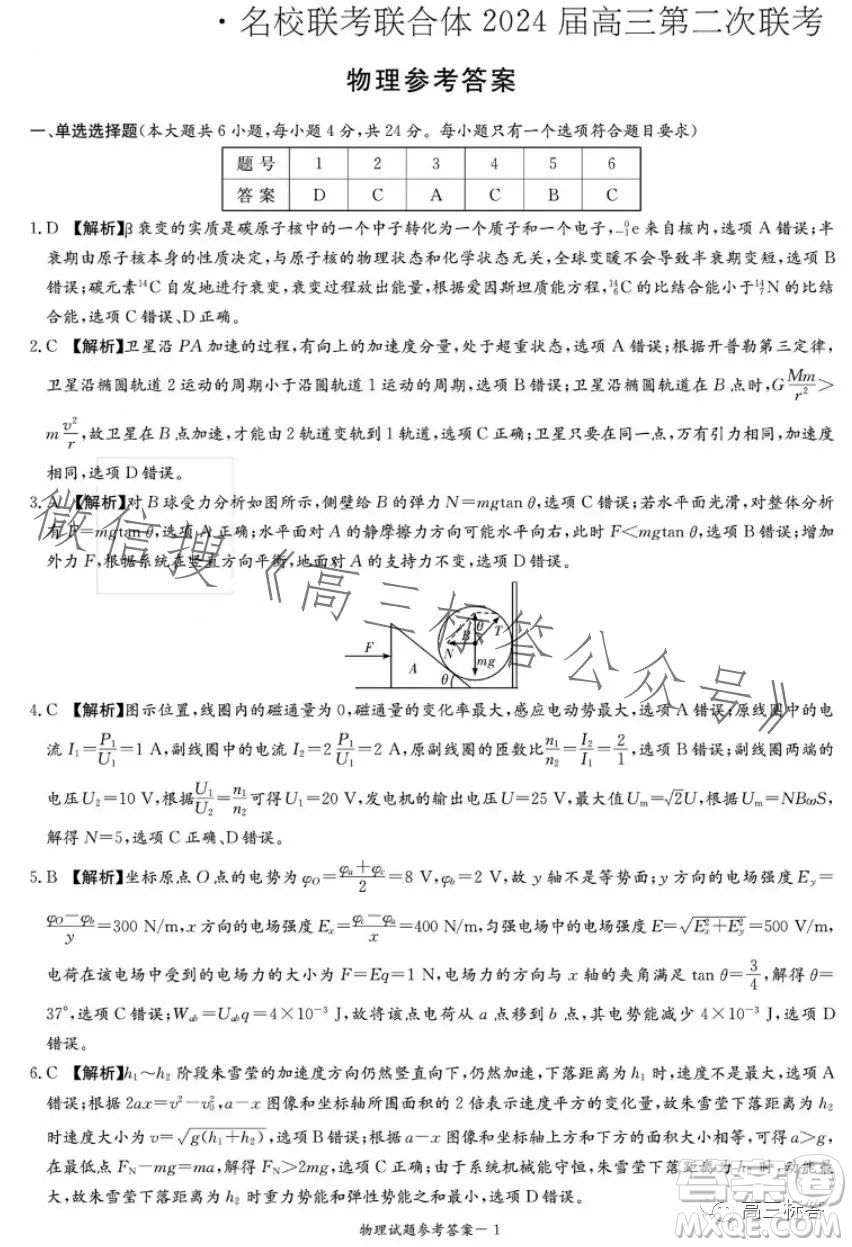 ·名校联考联合体 2024 届高三第二次联考
物理参考答案
一、单选选择题(本大题共 6 小题,每小题 4 分,共 24 分。每小题只有一个选项符合题目要求)
题 号 1 2 3 4 5 6
答 案 D C A C B C
1. D 【解析】β 衰变的实质是碳原子核中的一个中子转化为一个质子和一个电子,⁰₋₁e 来自核内,选项 A 错误;半
衰期由原子核本身的性质决定,与原子核的物理状态和化学状态无关,全球变暖不会导致半衰期变短,选项 B
错误;碳元素¹⁴C 自发地进行衰变,衰变过程放出能量,根据爱因斯坦质能方程,¹⁴₆C 的比结合能小于¹⁴₇N 的比结
合能,选项 C 错误、D 正确。
2. C 【解析】卫星沿 PA 加速的过程,有向上的加速度分量,处于超重状态,选项 A 错误;根据开普勒第三定律,
卫星沿椭圆轨道 2 运动的周期小于沿圆轨道 1 运动的周期,选项 B 错误;卫星沿椭圆轨道在 B 点时,G Mm/r² >
m v²/r,故卫星在 B 点加速,才能由 2 轨道变轨到 1 轨道,选项 C 正确;卫星只要在同一点,万有引力相同,加速度
相同,选项 D 错误。
3. A 【解析】对 B 球受力分析如图所示,侧壁给 B 的弹力 N=mgtan θ,选项 C 错误;若水平面光滑,对整体分析
有 F=mgtan θ,选项 A 正确;水平面对 A 的静摩擦力方向可能水平向右,此时 F<mgtan θ,选项 B 错误;增加
外力 F,根据系统在竖直方向平衡,地面对 A 的支持力不变,选项 D 错误。
F A θ N B θ T mg
4. C 【解析】图示位置,线圈内的磁通量为 0,磁通量的变化率最大,感应电动势最大,选项 A 错误;原线圈中的电
流 I₁=P₁/U₁=1 A,副线圈中的电流 I₂=2 P₁/U₁=2 A,原副线圈的匝数比 n₁/n₂=I₂/I₁=2/1,选项 B 错误;副线圈两端的
电压 U₂=10 V,根据 U₁/U₂=n₁/n₂ 可得 U₁=20 V,发电机的输出电压 U=25 V,最大值 Uₘ=√2U,根据 Uₘ=NBωS,
解得 N=5,选项 C 正确、D 错误。
5. B 【解析】坐标原点 O 点的电势为 φ_O=(φ_a+φ_c)/2=8 V,φ_b=2 V,故 y 轴不是等势面;y 方向的电场强度 E_y=
(φ_O−φ_b)/y=300 N/m,x 方向的电场强度 E_x=(φ_c−φ_a)/x=400 N/m,匀强电场中的电场强度 E=√(E_x²+E_y²)=500 V/m,
电荷在该电场中受到的电场力的大小为 F=Eq=1 N,电场力的方向与 x 轴的夹角满足 tan θ=3/4,解得 θ=
37°,选项 C 错误;W_ab=U_ab q=4×10⁻³ J,故将该点电荷从 a 点移到 b 点,其电势能减少 4×10⁻³ J,选项 D
错误。
6. C 【解析】h₁～h₂ 阶段朱雪莹的加速度方向仍然竖直向下,仍然向下加速,下落距离为 h₁ 时,速度不是最大,选项 A
错误;根据 2ax=v²−v₀²,a−x 图像和坐标轴所围面积的 2 倍表示速度平方的变化量,故朱雪莹下落距离为 h₂
时速度大小为 v=√(g(h₁+h₂)),选项 B 错误;根据 a−x 图像和坐标轴上方和下方的面积大小相等,可得 a>g,
在最低点 F_N−mg=ma,解得 F_N>2mg,选项 C 正确;由于系统机械能守恒,朱雪莹下落距离为 h₂ 时,动能最
大,故朱雪莹下落距离为 h₂ 时重力势能和弹性势能之和最小,选项 D 错误。
物理试题参考答案－ 1
微信搜《高三标答公众号》
高三标答
答案圈
MXQE.COM